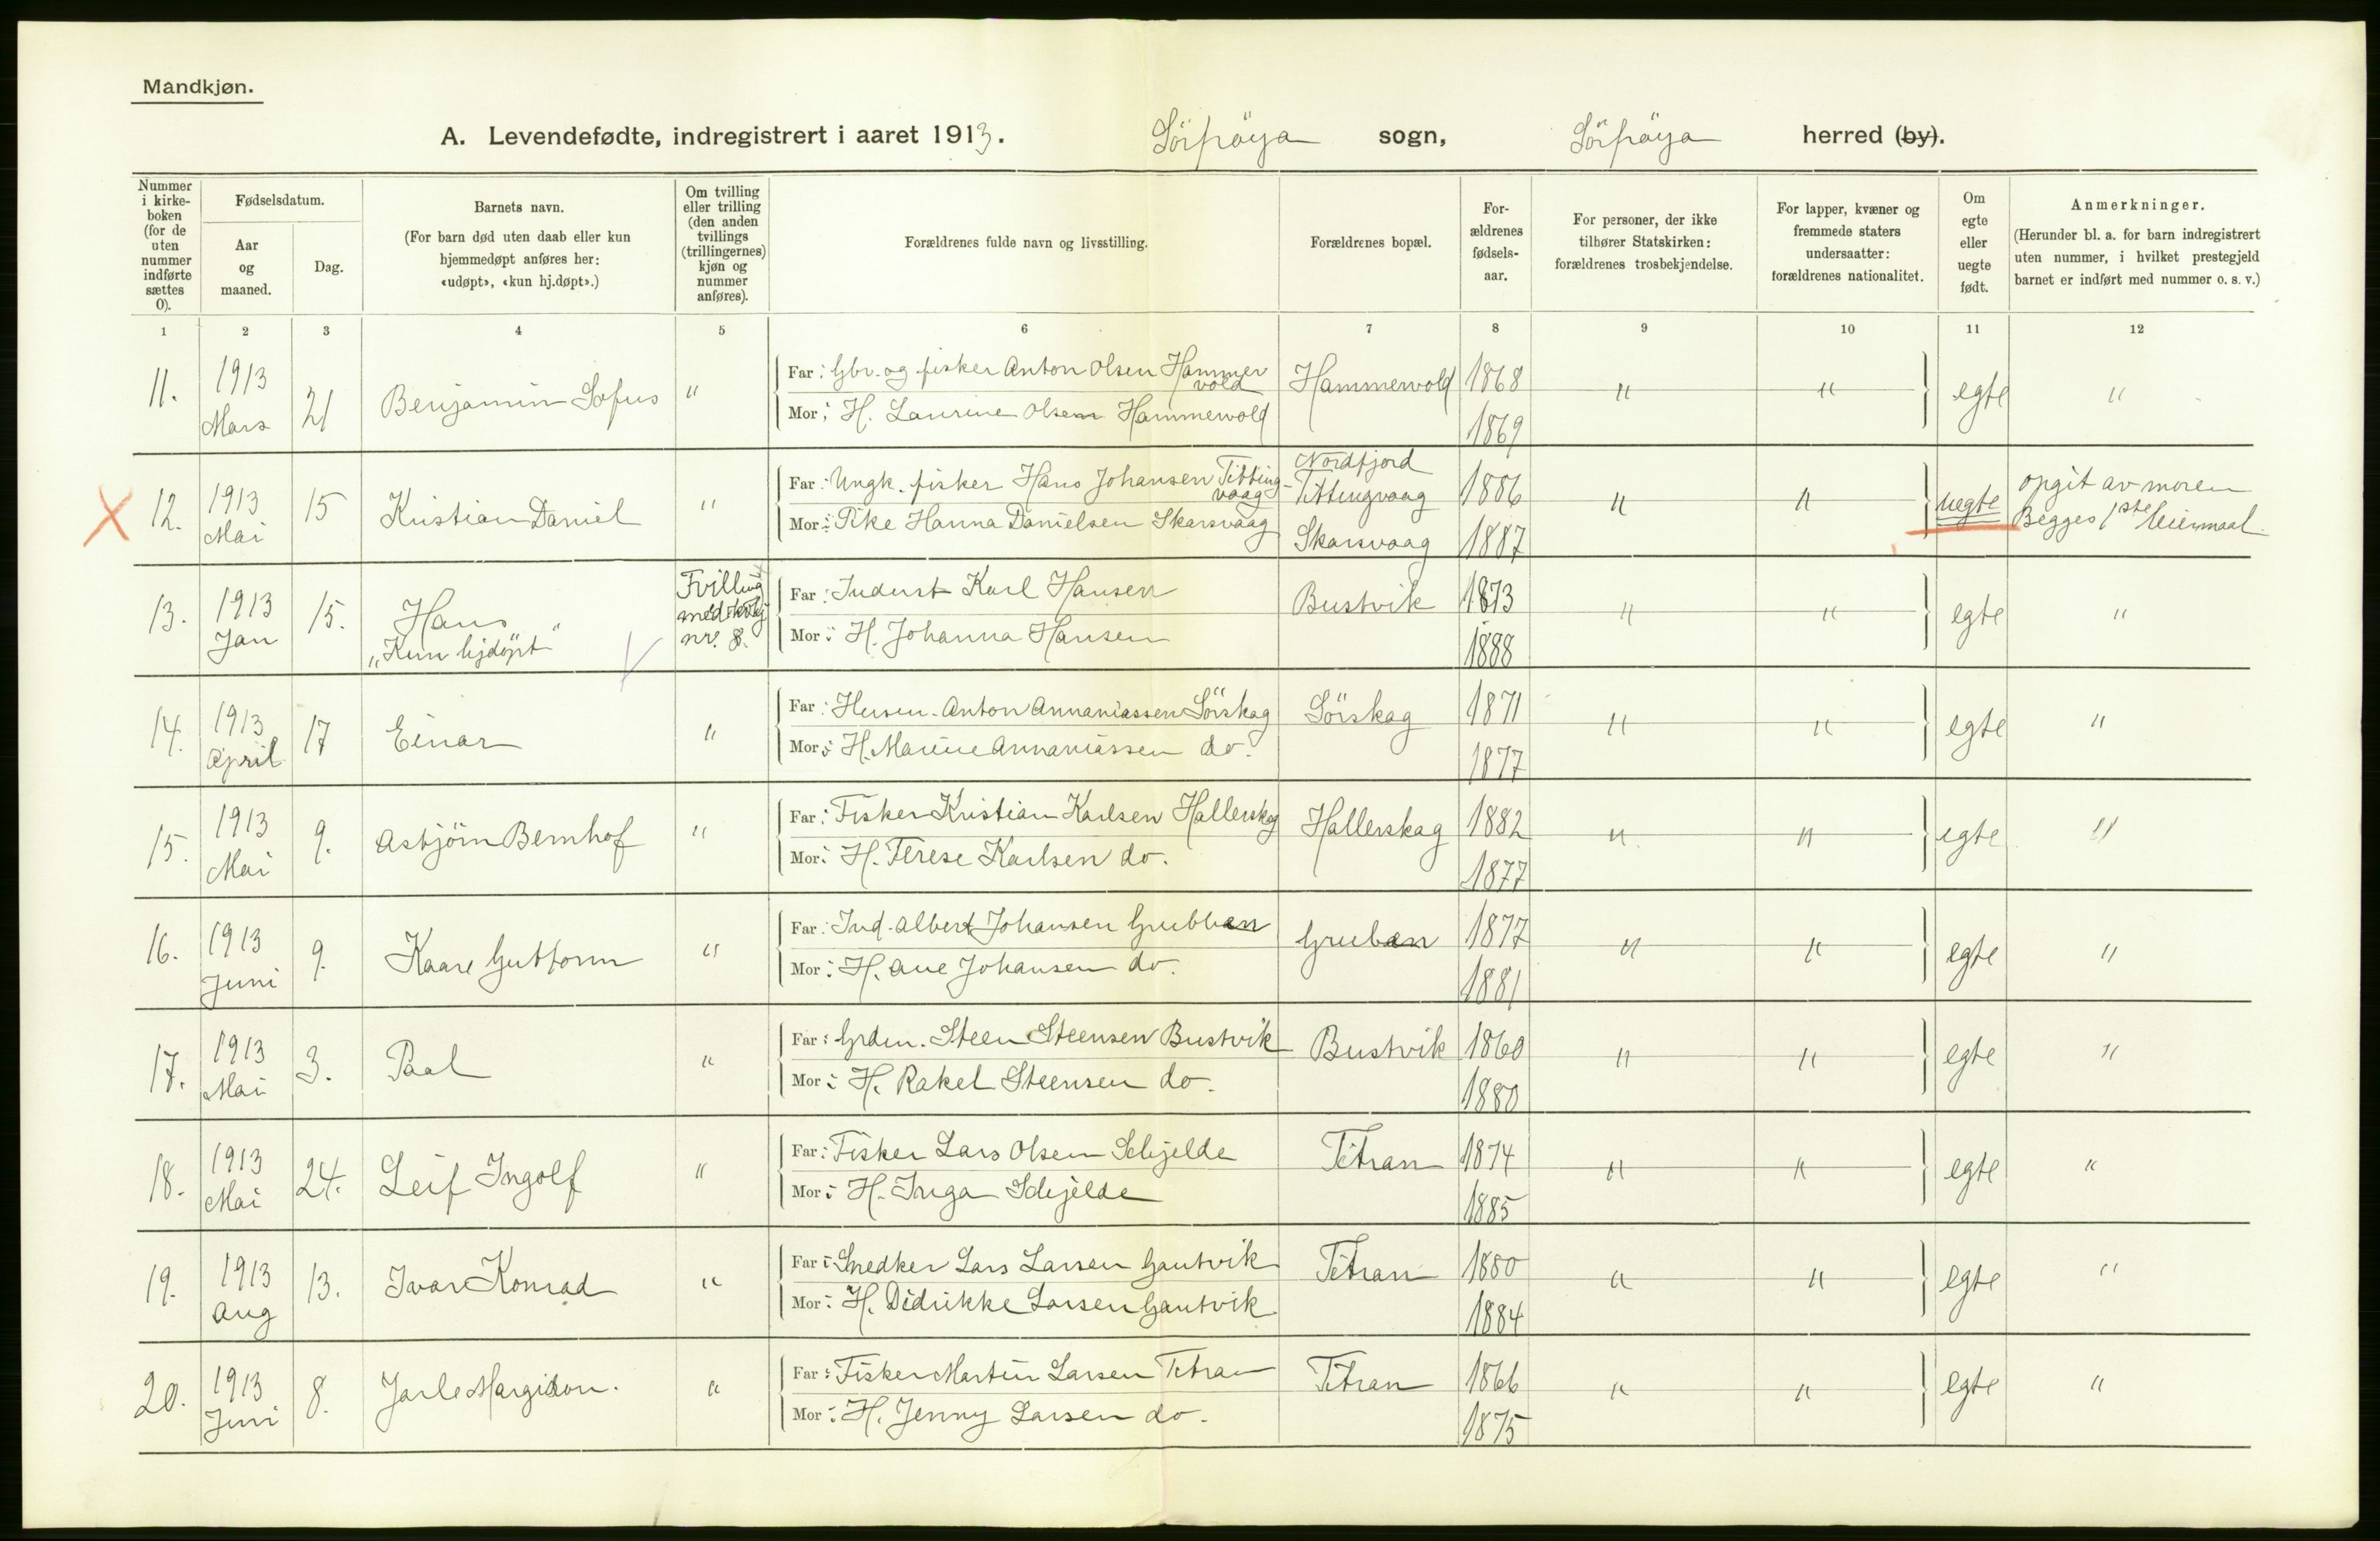 Mandkjøn.
A. Levendefødte, indregistrert i aaret 1913. Sörfröya sogn, Sörfröya herred (by).
Nummer i kirkeboken (for de uten nummer indførte sættes 0).
Fødselsdatum.
Aar og maaned.
Dag.
Barnets navn.
(For barn død uten daab eller kun hjemmedøpt anføres her: «udøpt», «kun hj.døpt».)
Om tvilling eller trilling (den anden tvillings (trillingernes) kjøn og nummer anføres).
Forældrenes fulde navn og livsstilling.
Forældrenes bopæl.
For-ældrenes fødsels-aar.
For personer, der ikke tilhører Statskirken: forældrenes trosbekjendelse.
For lapper, kvæner og fremmede staters undersaatter: forældrenes nationalitet.
Om egte eller uegte født.
Anmerkninger.
(Herunder bl. a. for barn indregistrert uten nummer, i hvilket prestegjeld barnet er indført med nummer o. s. v.)
1 2 3 4 5 6 7 8 9 10 11 12
11. 1913 Mars 21 Benjamin Sofus " Far: Gbr. og fisker Anton Olsen Hammervold Hammervold 1868 " " egte "
Mor: H. Laurine Olsen Hammervold 1869
12. 1913 Mai 15 Kristian Daniel " Far: Ungk. fisker Hans Johansen Tittingvaag Nordfjord Tittingvaag 1886 " " uegte opgit av moren
Mor: Pike Hanna Danielsen Skarsvaag Skarsvaag 1887 Begges 1ste leiermaal
13. 1913 Jan 15. Hans "Kun hjdöpt" Tvilling med kvkj nr. 8. Far: Inderst Karl Hansen Bustvik 1873 " " egte "
Mor: H. Johanna Hansen 1888
14. 1913 April 17 Einar " Far: Husm. Anton Annaniassen Sörskag Sörskag 1871 " " egte "
Mor: H. Marine Annaniassen do. 1877
15. 1913 Mai 9. Asbjörn Bernhof " Far: Fisker Kristian Karlsen Hallerskag Hallerskag 1882 " " egte "
Mor: H. Terese Karlsen do. 1877
16. 1913 Juni 9. Kaare Guttorm " Far: Ind. Albert Johansen Grubben Gruben 1877 " " egte "
Mor: H. Ane Johansen do. 1881
17. 1913 Mai 3. Paal " Far: Grdm. Steen Steensen Bustvik Bustvik 1860 " " egte "
Mor: H. Rakel Steensen do. 1880
18. 1913 Mai 24. Leif Ingolf " Far: Fisker Lars Olsen Schjelde Titran 1874 " " egte "
Mor: H. Inga Schjelde 1885
19. 1913 Aug 13. Ivar Konrad " Far: Snedker Lars Larsen Gautvik Titran 1880 " " egte "
Mor: H. Didrikke Larsen Gautvik 1884
20. 1913 Juni 8. Jarle Margidon. " Far: Fisker Martin Larsen Titran Titran 1866 " " egte "
Mor: H. Jenny Larsen do. 1875